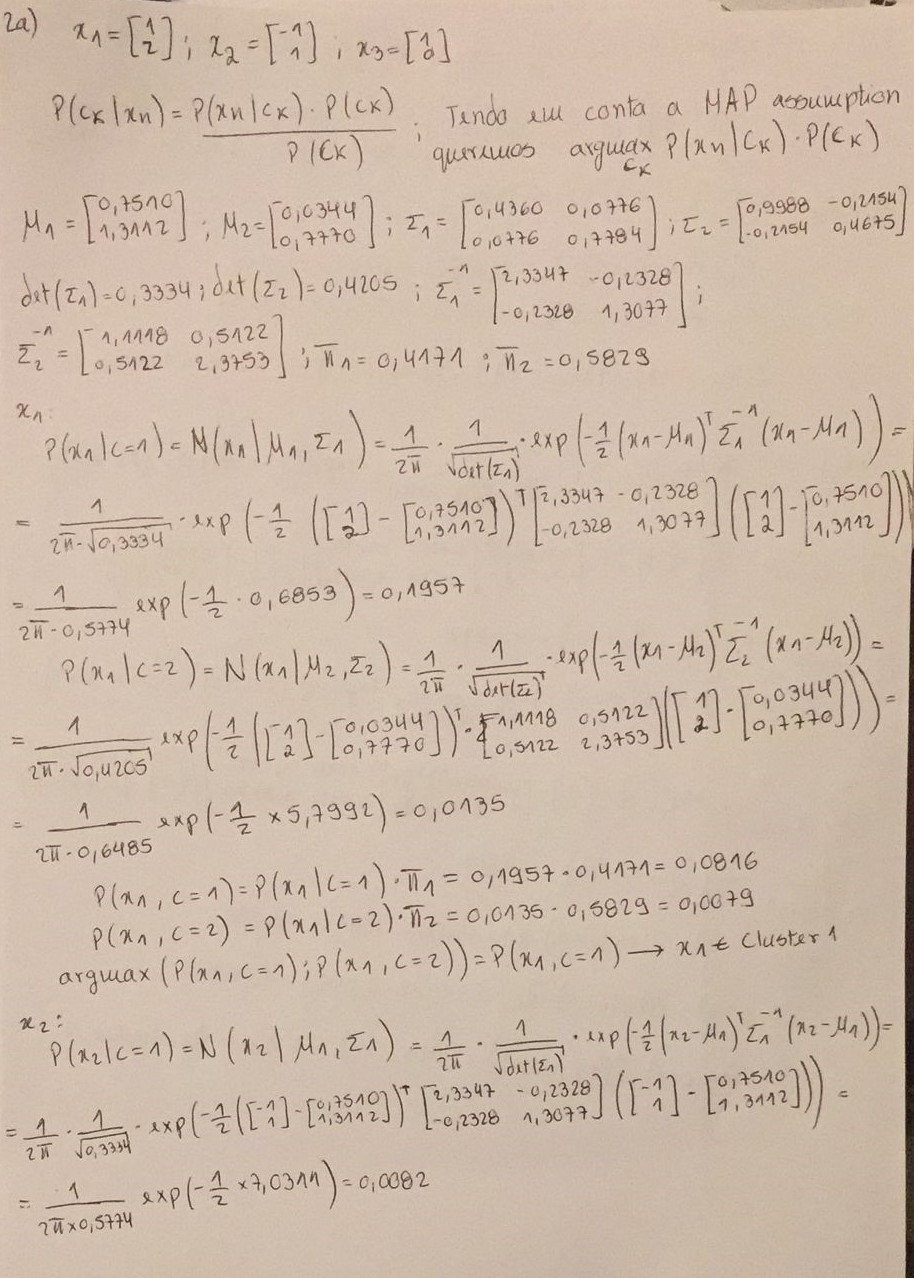 2a) x₁ = [1 2]; x₂ = [-1 1]; x₃ = [1 0]
P(cₖ|xₙ) = P(xₙ|cₖ)·P(cₖ) / P(Cₖ); Tendo em conta a MAP assumption
queremos argmax_{cₖ} P(xₙ|Cₖ)·P(Cₖ)
μ₁ = [0,7510 1,3112]; μ₂ = [0,0344 0,7770]; Σ₁ = [0,4360 0,0776 0,0776 0,7784]; Σ₂ = [0,9988 -0,2154 -0,2154 0,4675]
det(Σ₁) = 0,3334; det(Σ₂) = 0,4205; Σ₁⁻¹ = [2,3347 -0,2328 -0,2328 1,3077];
Σ₂⁻¹ = [1,1118 0,5122 0,5122 2,3753]; π₁ = 0,4171; π₂ = 0,5829
x₁:
P(x₁|c=1) = N(x₁|μ₁,Σ₁) = 1/2π · 1/√det(Σ₁) · exp(-1/2 (x₁-μ₁)ᵀ Σ₁⁻¹ (x₁-μ₁)) =
= 1/(2π·√0,3334) · exp(-1/2 ([1 2] - [0,7510 1,3112])ᵀ [2,3347 -0,2328 -0,2328 1,3077] ([1 2] - [0,7510 1,3112]))
= 1/(2π·0,5774) exp(-1/2 · 0,6853) = 0,1957
P(x₁|c=2) = N(x₁|μ₂,Σ₂) = 1/2π · 1/√det(Σ₂) · exp(-1/2 (x₁-μ₂)ᵀ Σ₂⁻¹ (x₁-μ₂)) =
= 1/(2π·√0,4205) exp(-1/2 ([1 2] - [0,0344 0,7770])ᵀ · [1,1118 0,5122 0,5122 2,3753] ([1 2] - [0,0344 0,7770])) =
= 1/(2π·0,6485) exp(-1/2 × 5,7992) = 0,0135
P(x₁, c=1) = P(x₁|c=1)·π₁ = 0,1957·0,4171 = 0,0816
P(x₁, c=2) = P(x₁|c=2)·π₂ = 0,0135·0,5829 = 0,0079
argmax (P(x₁, c=1); P(x₁, c=2)) = P(x₁, c=1) → x₁ ∈ Cluster 1
x₂:
P(x₂|c=1) = N(x₂|μ₁,Σ₁) = 1/2π · 1/√det(Σ₁) · exp(-1/2 (x₂-μ₁)ᵀ Σ₁⁻¹ (x₂-μ₁)) =
= 1/2π · 1/√0,3334 · exp(-1/2 ([-1 1] - [0,7510 1,3112])ᵀ [2,3347 -0,2328 -0,2328 1,3077] ([-1 1] - [0,7510 1,3112])) =
= 1/(2π×0,5774) exp(-1/2 × 7,0311) = 0,0082